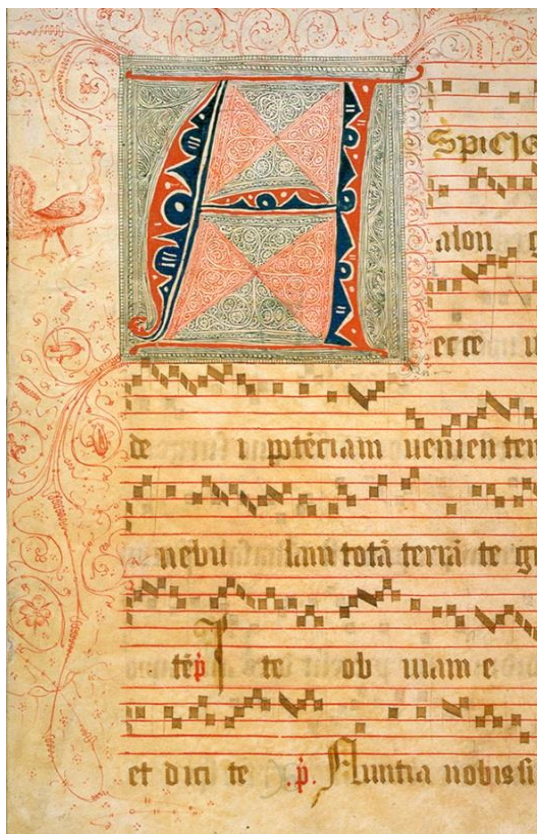 A
Spicie
alon g
ecce u
de i potēciam uenien tem
nebu lam totā terrā te g
tē p Ite ob uiam e
et dici te .p. Nuntia nobis si